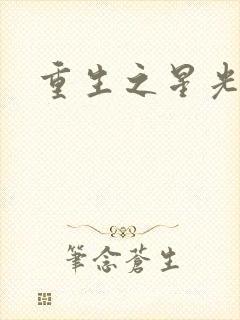 重生之星光
筆念蒼生